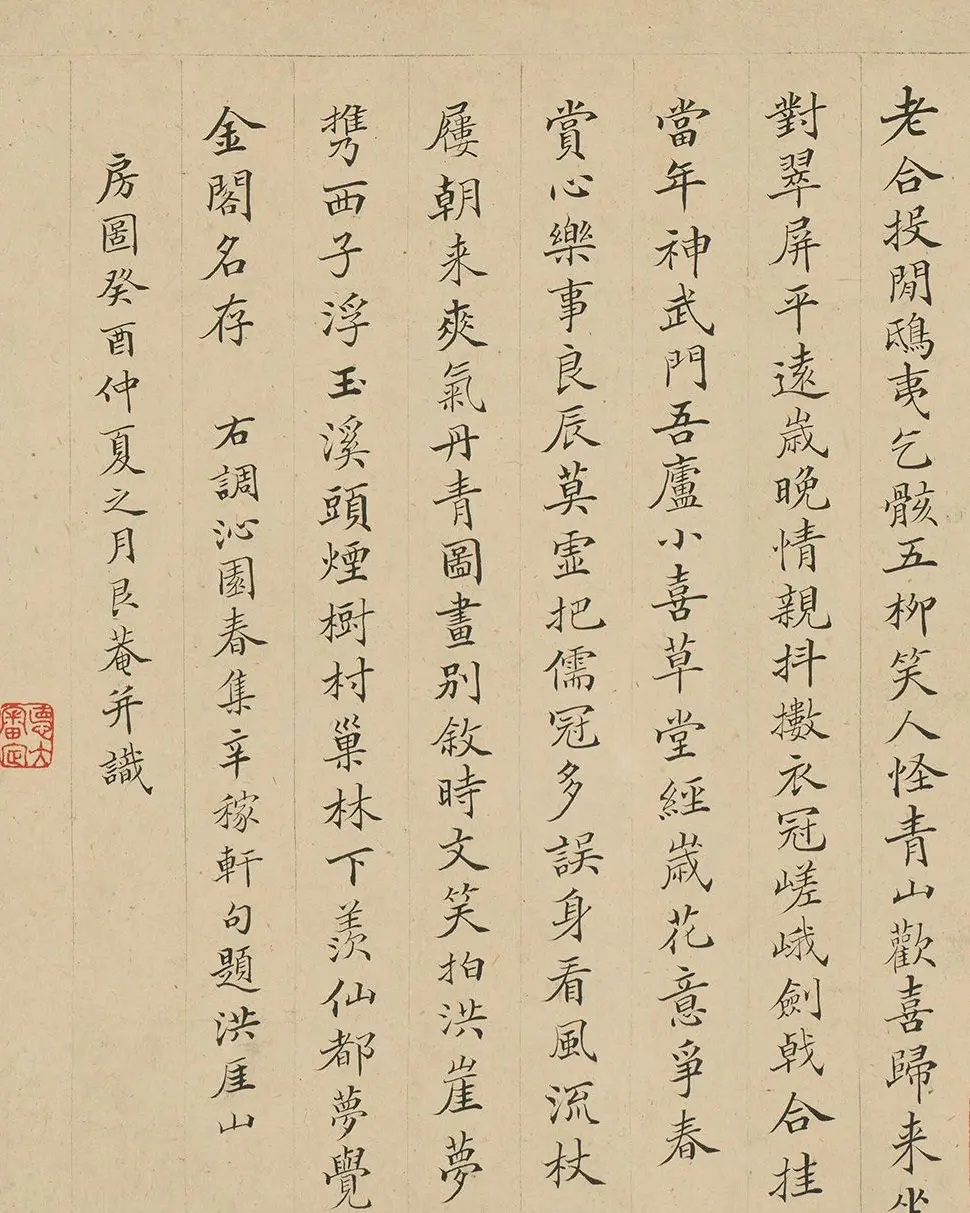 老合投閒鴟夷乞骸五柳笑人怪青山歡喜歸来坐
對翠屏平遠歳晚情親抖擻衣冠嵯峨劍戟合挂
當年神武門吾廬小喜草堂經歳花意爭春
賞心樂事良辰莫虛把儒冠多誤身看風流杖
屨朝来爽氣丹青圖畫別敘時文笑拍洪崖夢
携西子浮玉溪頭煙樹村巢林下羨仙都夢覺
金閣名存　右調沁園春集辛稼軒句題洪厓山
房圖癸酉仲夏之月艮菴并識